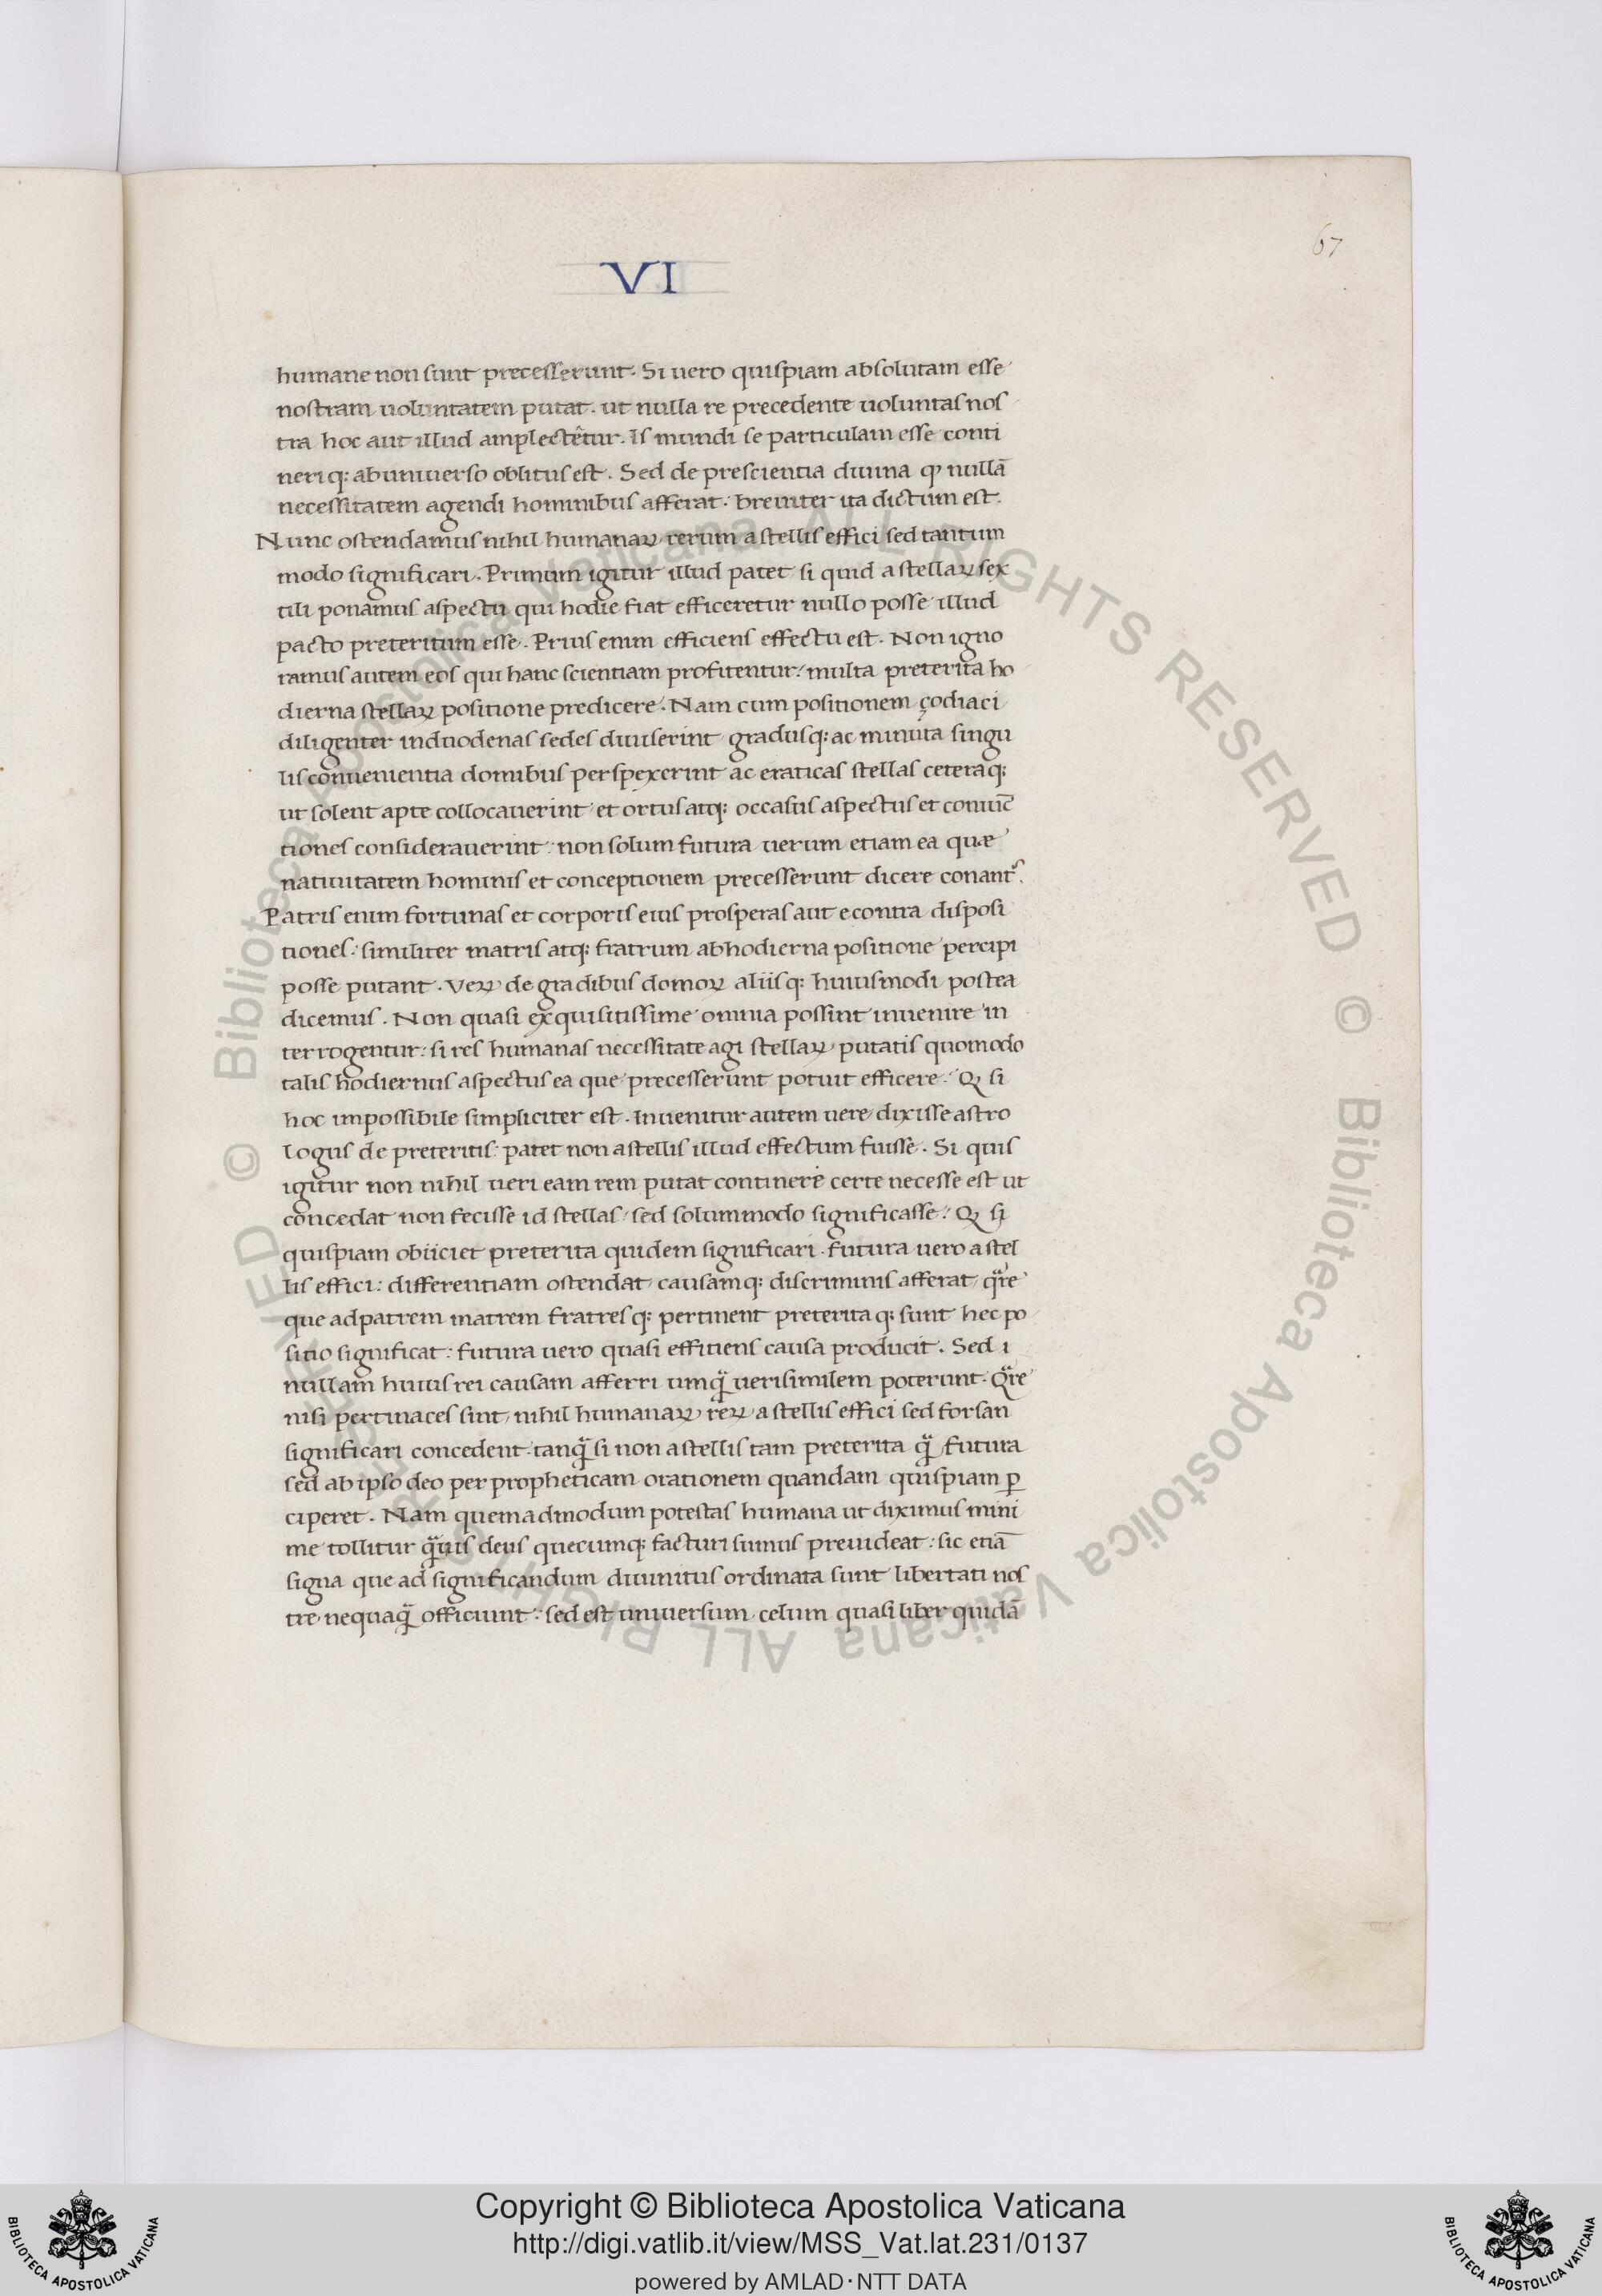 67
VI
humane non sunt precesserunt. Si uero quispiam absolutam esse
nostram uoluntatem putat. ut nulla re precedente uoluntas nos
tra hoc aut illud amplectetur. Is mundi se particulam esse conti
neriq: ab uniuerso oblitus est. Sed de prescientia diuina ꝙ nullā
necessitatem agendi hominibus afferat. breuiter ita dictum est.
Nunc ostendamus nihil humanaꝝ rerum a stellis effici sed tantum
modo significari. Primum igitur illud patet si quid a stellaꝝ sex
tili ponamus aspectu qui hodie fiat efficeretur nullo posse illud
pacto preteritum esse. Prius enim efficiens effectu est. Non igno
ramus autem eos qui hanc scientiam profitentur: multa preterita ho
dierna stellaꝝ positione predicere. Nam cum positionem çodiaci
diligenter in duodenas sedes diuiserint gradusq: ac minuta singu
lis conuenientia domibus perspexerint ac eraticas stellas ceteraq:
ut solent apte collocauerint et ortus atq: occasus aspectus et coniūc
tiones considerauerint: non solum futura uerum etiam ea quæ
natiuitatem hominis et conceptionem precesserunt dicere conant᷒.
Patris enim fortunas et corporis eius prosperas aut econtra disposi
tiones: similiter matris atq: fratrum ab hodierna positione percipi
posse putant. Veꝝ de gradibus domoꝝ aliisq: huiusmodi postea
dicemus. Non quasi exquisitissime omnia possint inuenire in
terrogentur: si res humanas necessitate agi stellaꝝ putatis quomodo
talis hodiernus aspectus ea que precesserunt potuit efficere. Ꝙ si
hoc impossibile simpliciter est. Inuenitur autem uere dixisse astro
logus de preteritis: patet non a stellis illud effectum fuisse. Si quis
igitur non nihil ueri eam rem putat continere certe necesse est ut
concedat non fecisse id stellas: sed solummodo significasse. Ꝙ si
quispiam obiiciet preterita quidem significari. futura uero a stel
lis effici: differentiam ostendat causamq: discriminis afferat. qͣre
que ad patrem matrem fratresq: pertinent preteritaq: sunt hec po
sitio significat: futura uero quasi effitiens causa producit. Sed i
nullam huius rei causam afferri umqᷓ uerisimilem poterunt. Qͣre
nisi pertinaces sint, nihil humanaꝝ reꝝ a stellis effici sed forsan
significari concedent. tanqᷓ si non a stellis tam preterita qᷓ futura
sed ab ipso deo per propheticam orationem quandam quispiam ꝑ
ciperet. Nam quemadmodum potestas humana ut diximus mini
me tollitur qᷓuis deus quecumq: facturi sumus preuideat: sic etiā
signa que ad significandum diuinitus ordinata sunt libertati nos
tre nequaqᷓ officiunt: sed est uniuersum celum quasi liber quidā
© Biblioteca Apostolica Vaticana ALL RIGHTS RESERVED © Biblioteca Apostolica Vaticana ALL RIGHTS RESERVED
BIBLIOTECA APOSTOLICA VATICANA
Copyright © Biblioteca Apostolica Vaticana
http://digi.vatlib.it/view/MSS_Vat.lat.231/0137
powered by AMLAD·NTT DATA
BIBLIOTECA APOSTOLICA VATICANA